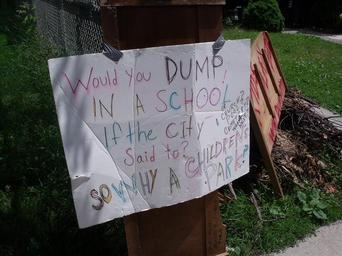 Would you DUMP
IN A SCHOOL
If the City
Said to?
SO WHY A CHILDREN'S
PARK?